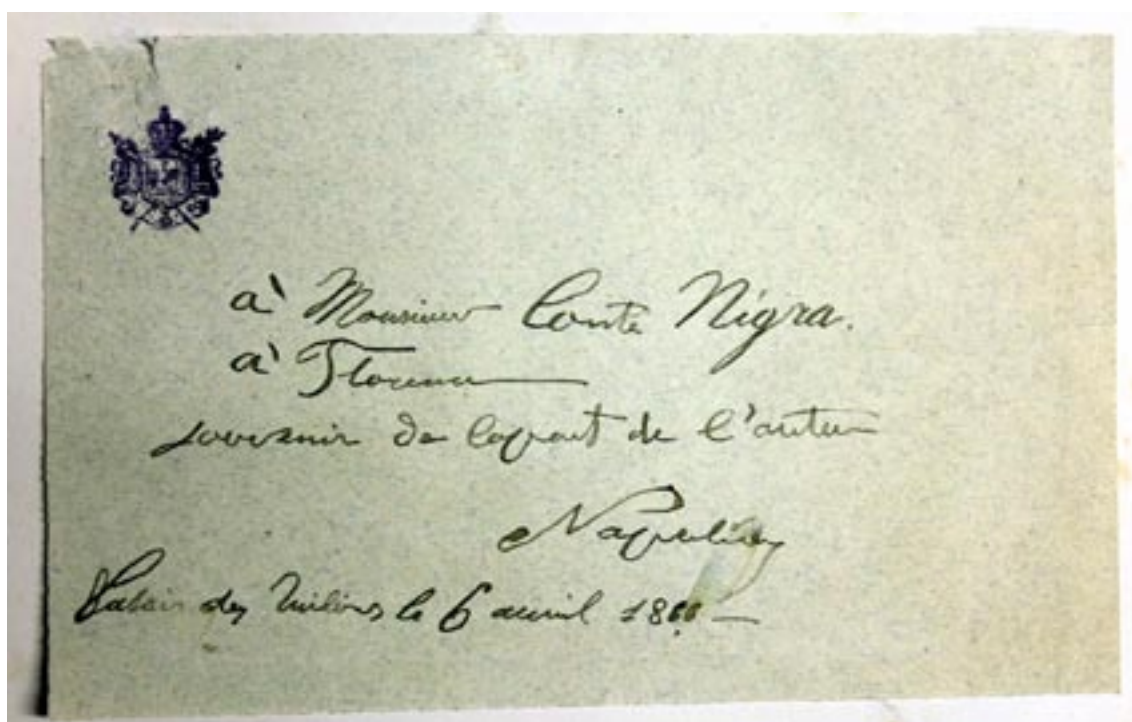 à Monsieur Conte Nigra.
à Florence
souvenir de la part de l'auteur
Napoléon
Palais des Tuileries le 6 avril